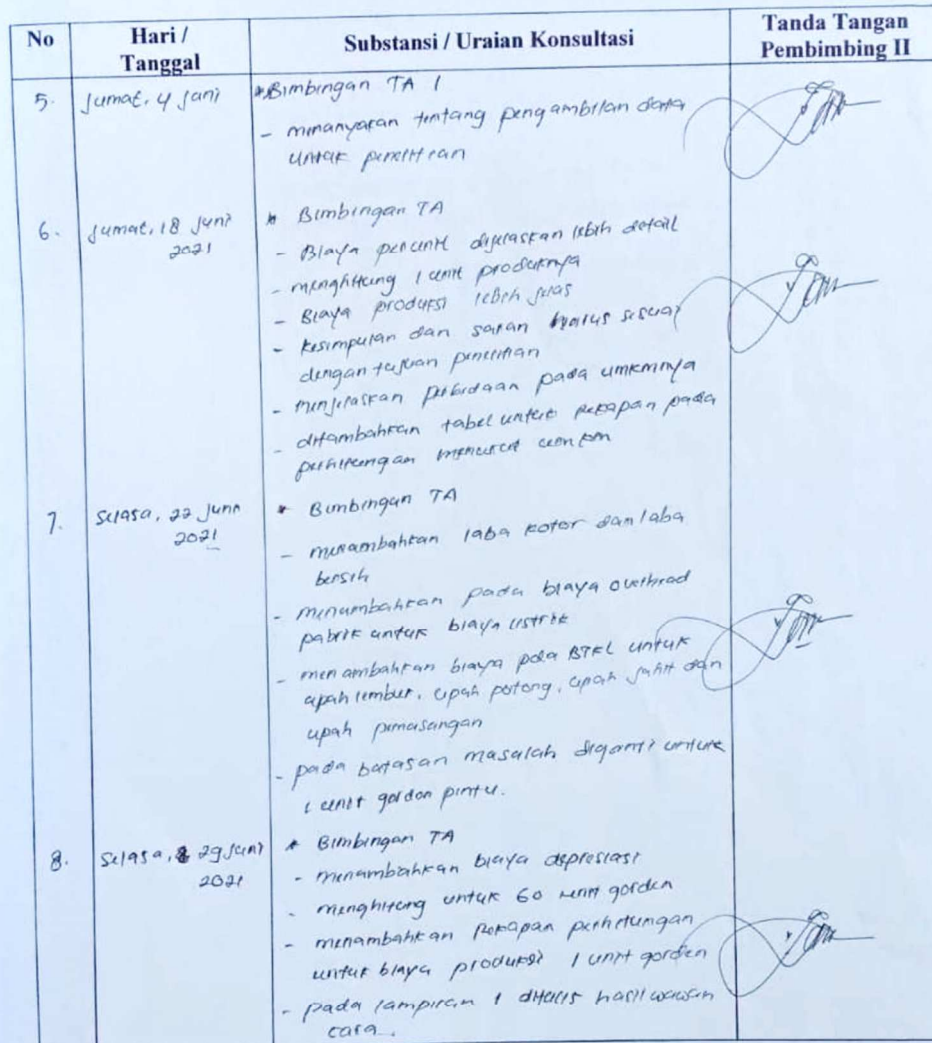 No
Hari /
Tanggal
Substansi / Uraian Konsultasi
Tanda Tangan
Pembimbing II
5. Jumat, 4 Juni
* Bimbingan TA 1
- menanyakan tentang pengambilan data
untuk penelitian
6. Jumat, 18 Juni
2021
* Bimbingan TA
- Biaya per unit dijelaskan lebih detail
- menghitung 1 unit produknya
- Biaya produksi lebih jelas
- kesimpulan dan saran harus sesuai
dengan tujuan penelitian
- menjelaskan perbedaan pada umkmnya
- ditambahkan tabel untuk rekapan pada
perhitungan menurut umkm
7. Selasa, 22 Juni
2021
* Bimbingan TA
- menambahkan laba kotor dan laba
bersih
- menambahkan pada biaya overhead
pabrik untuk biaya listrik
- menambahkan biaya pada BTKL untuk
upah lembur, upah potong, upah jahit dan
upah pemasangan
- pada batasan masalah diganti untuk
1 unit gorden pintu.
8. Selasa, 29 Juni
2021
* Bimbingan TA
- menambahkan biaya depresiasi
- menghitung untuk 60 unit gorden
- menambahkan Rekapan perhitungan
untuk biaya produksi 1 unit gorden
- pada lampiran 1 ditulis hasil wawan
cara.